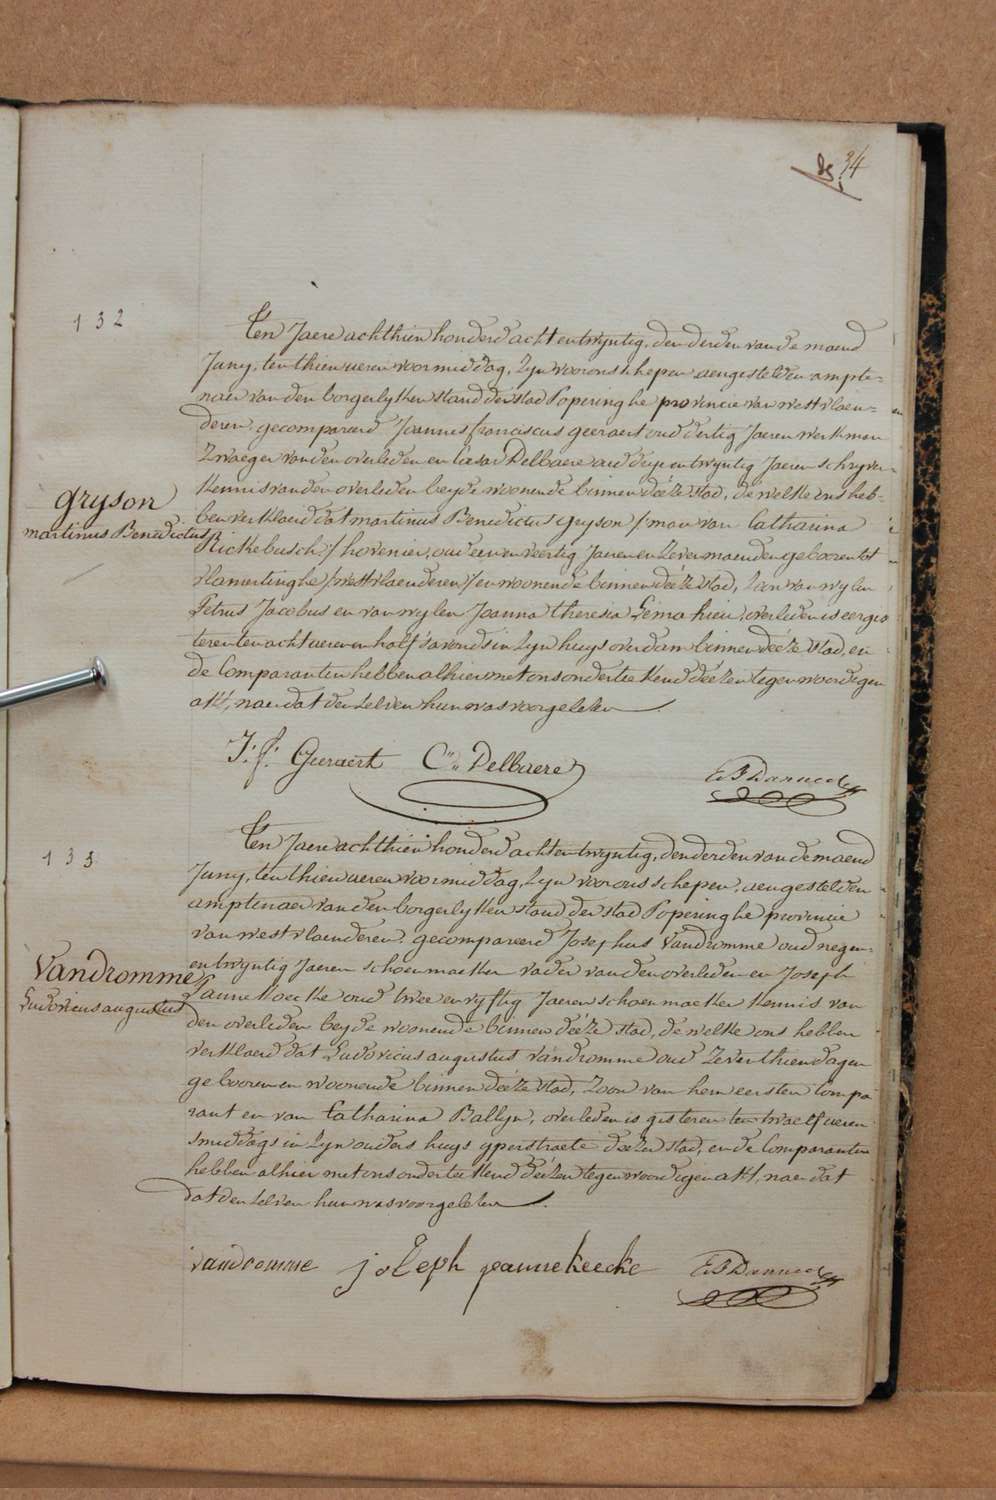 34
132
Ten Jaere achthien honderd acht entwyntig, den derden van de maend
Juny, ten thien ueren voormiddag, Zyn voor ons schepen aengestelden ampte-
naer van den borgerlyken stand der stad Poperinghe provincie van westvlaen-
deren, gecompareerd Joannes franciscus geeraert oud dertig Jaeren werkman
Zwager van den overleden en Cesar Delbaere oud dryentwyntig Jaeren schryver
Kennis van den overleden beyde woonende binnen déeze stad, de welke ons heb-
gryson
martinus Benedictus
ben verklaerd dat martinus Benedictus gryson / man van Catharina
Rickebusch / hovenier, oud een en veertig Jaeren en Zeven maenden gebooren tot
vlamertinghe / westvlaenderen / en woonende binnen déeze stad, Zoon van wylen
Petrus Jacobus en van wylen Joanna Theresia Lemahieu, overleden is eergis
teren ten acht ueren en half s'avonds in Zyn huys overdam binnen déeze stad, en
de Comparanten hebben alhier met ons onderteekend déezen tegenwoordigen
akt, naer dat den zelven hun was voorgelezen
J: f: Geeraert C.. Delbaere
133
Ten Jaere achthien honderd acht entwyntig, den derden van de maend
Juny, ten thien ueren voormiddag, Zyn voor ons schepen, aengestelden
amptenaer van den borgerlyken stand der stad Poperinghe provincie
van westvlaenderen, gecompareerd Josephus Vandromme oud negen-
entwyntig Jaeren schoenmaeker vader van den overleden en Joseph
Vandromme
Ludovicus augustus
Pannekoecke oud twee en vyftig Jaeren schoenmaeker Kennis van
den overleden beyde woonende binnen déeze stad, dé welke ons hebben
verklaerd dat Ludovicus augustus Vandromme oud Zeventhien dagen
gebooren en woonende binnen déeze stad, Zoon van hem eersten Compa
rant en van Catharina Ballyn, overleden is gisteren ten twaelf ueren
smiddags in Zyn ouders huys yperstraete déezer stad, en de Comparanten
hebben alhier met ons onderteekend déezen tegenwoordigen akt, naer dat
dat den zelven hun was voorgelezen
vandromme joseph pannekoecke